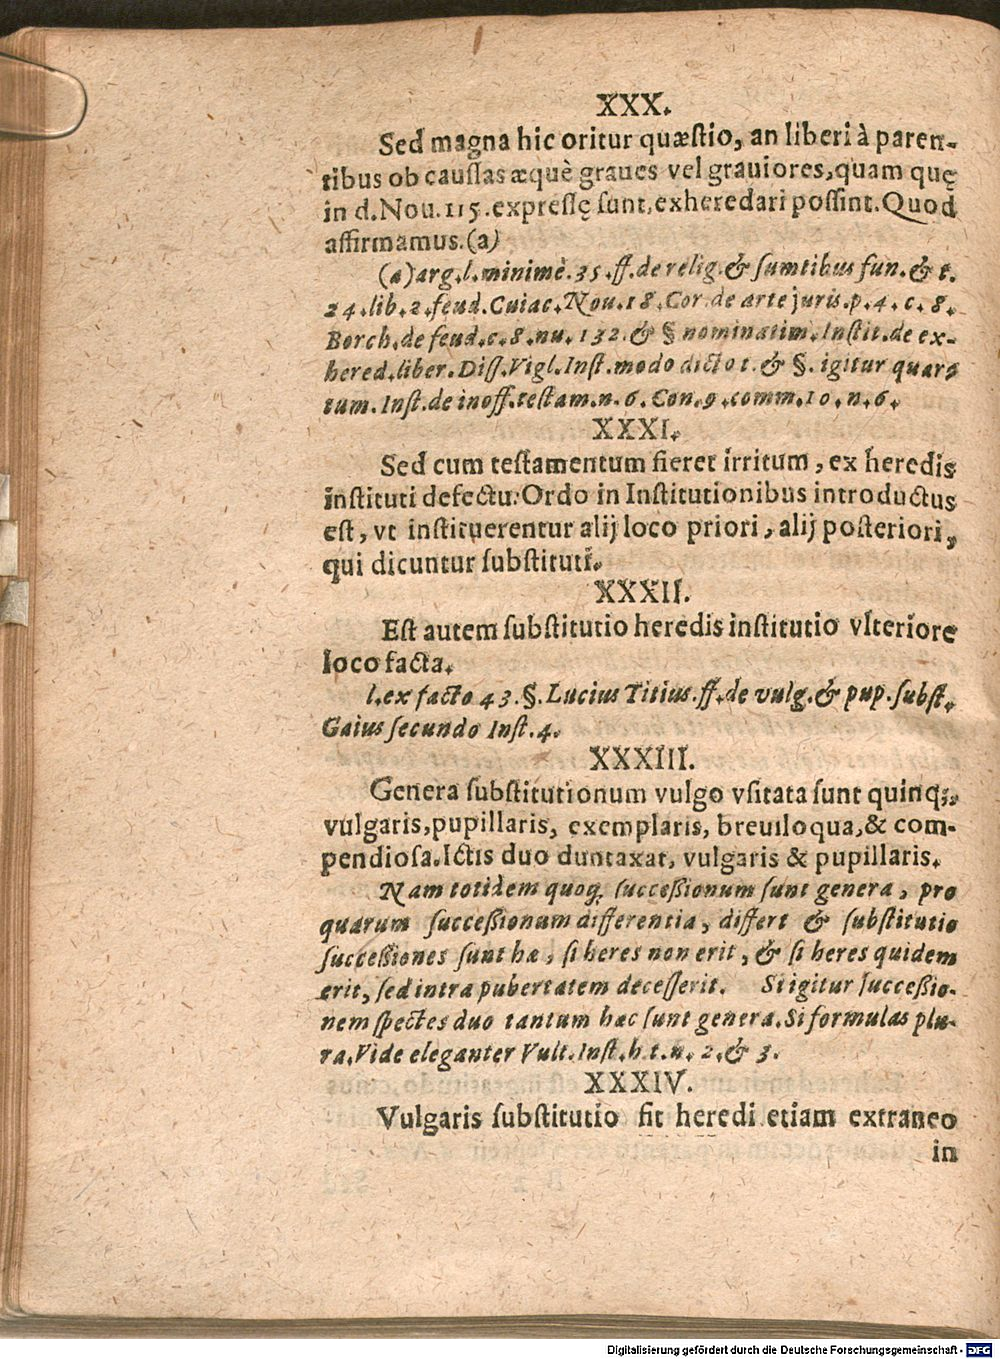 XXX.
Sed magna hic oritur quæstio, an liberi à paren-
tibus ob caussas æquè graues vel grauiores, quam quę
in d. Nou. 115. expressę sunt, exheredari possint. Quod
affirmamus. (a)
(a) arg. l. minimè. 35. ff. de relig. & sumtibus fun. & t.
24. lib. 2. feud. Cuiac. Nou. 18. Cor. de arte juris. p. 4. c. 8.
Borch. de feud. c. 8. nu. 132. & § nominatim. Instit. de ex-
hered. liber. Diss. Vigl. Inst. modo dicto t. & §. igitur quar
tum. Inst. de inoff. testam. n. 6. Con. 9. comm. 10. n. 6.
XXXI.
Sed cum testamentum fieret irritum, ex heredis
instituti defectu: Ordo in Institutionibus introductus
est, vt instituerentur alij loco priori, alij posteriori,
qui dicuntur substituti.
XXXII.
Est autem substitutio heredis institutio vlteriore
loco facta.
l. ex facto 43. §. Lucius Titius. ff. de vulg. & pup. subst.
Gaius secundo Inst. 4.
XXXIII.
Genera substitutionum vulgo vsitata sunt quinq;,
vulgaris, pupillaris, exemplaris, breuiloqua, & com-
pendiosa. Ictis duo duntaxat, vulgaris & pupillaris.
Nam totidem quoq; successionum sunt genera, pro
quarum successionum differentia, differt & substitutio
successiones sunt hæ, si heres non erit, & si heres quidem
erit, sed intra pubertatem decesserit. Si igitur successio-
nem spectes duo tantum hæc sunt genera. Si formulas plu-
ra. Vide eleganter Vult. Inst. h. t. n. 2. & 3.
XXXIV.
Vulgaris substitutio fit heredi etiam extraneo
in
Digitalisierung gefördert durch die Deutsche Forschungsgemeinschaft - DFG